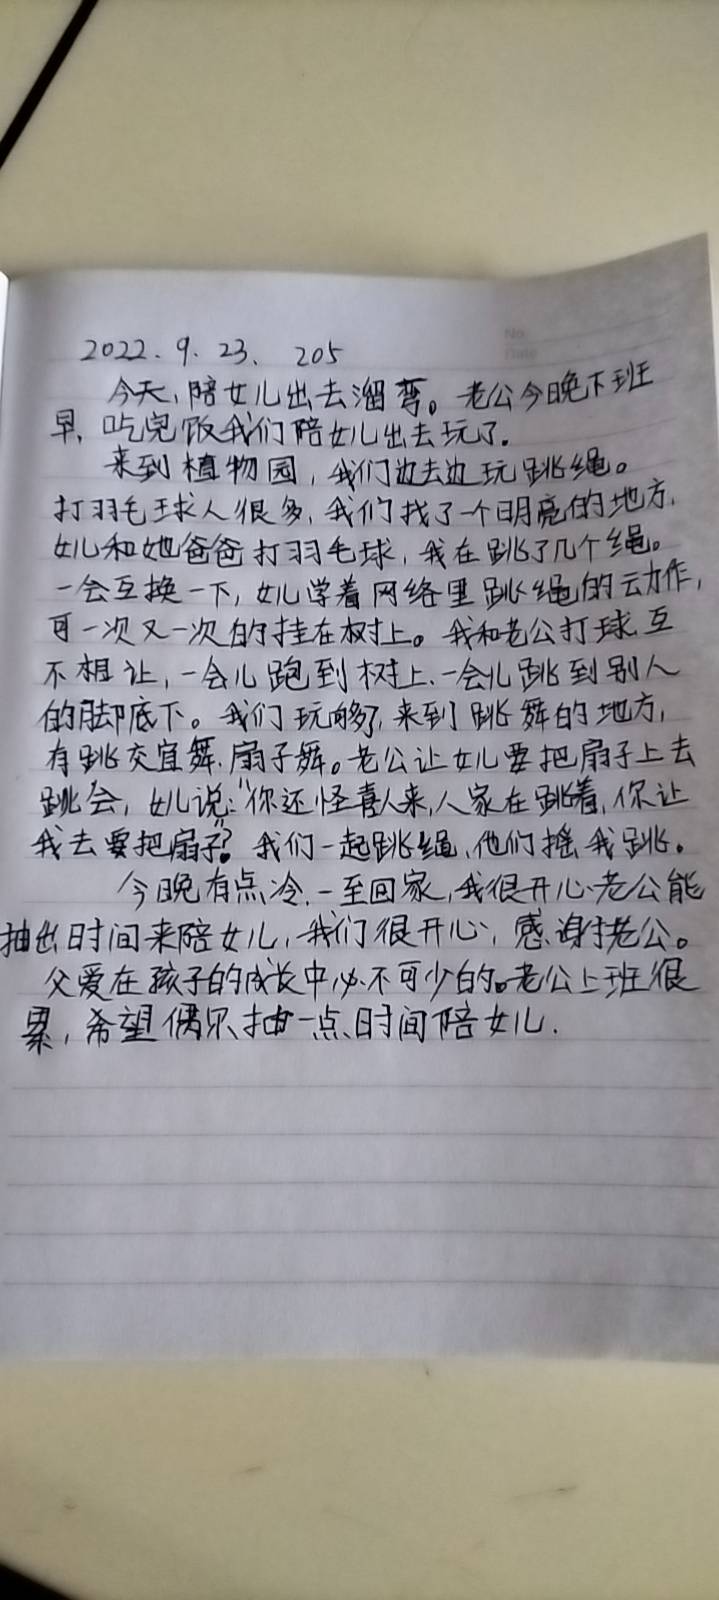 No
Date
2022.9.23、 205
今天,陪女儿出去溜弯。老公今晚下班
早,吃完饭我们陪女儿出去玩了.
来到植物园,我们边去边玩跳绳。
打羽毛球人很多,我们找了一个明亮的地方,
女儿和她爸爸打羽毛球,我在跳了几个绳。
一会互换一下,女儿学着网络里跳绳的动作,
可一次又一次的挂在树上。我和老公打球互
不相让,一会儿跑到树上、一会儿跳到别人
的脚底下。我们玩够了,来到跳舞的地方,
有跳交宜舞、扇子舞。老公让女儿要把扇子上去
跳会,女儿说:"你还怪喜人来,人家在跳着,你让
我去要把扇子"?我们一起跳绳,他们摇我跳。
今晚有点冷、一至回家,我很开心老公能
抽出时间来陪女儿,我们很开心,感谢老公。
父爱在孩子的成长中必不可少的。老公上班很
累,希望偶尔抽一点时间陪女儿.